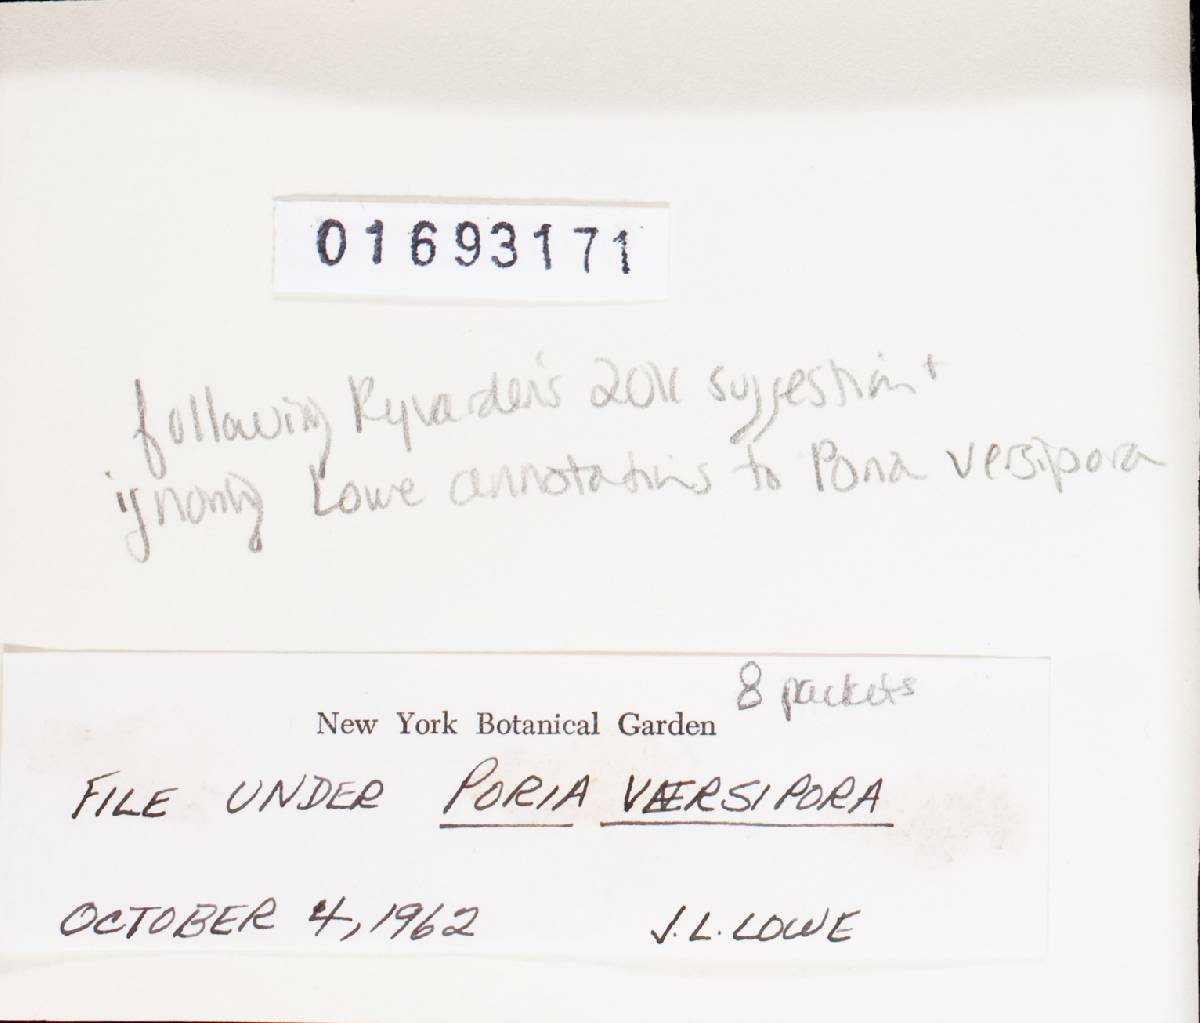 01693171
following Ryvarden's 2011 suggestion +
ignoring Lowe annotations to Poria versipora
8 packets
New York Botanical Garden
FILE UNDER PORIA VERSIPORA
OCTOBER 4, 1962 J.L. LOWE